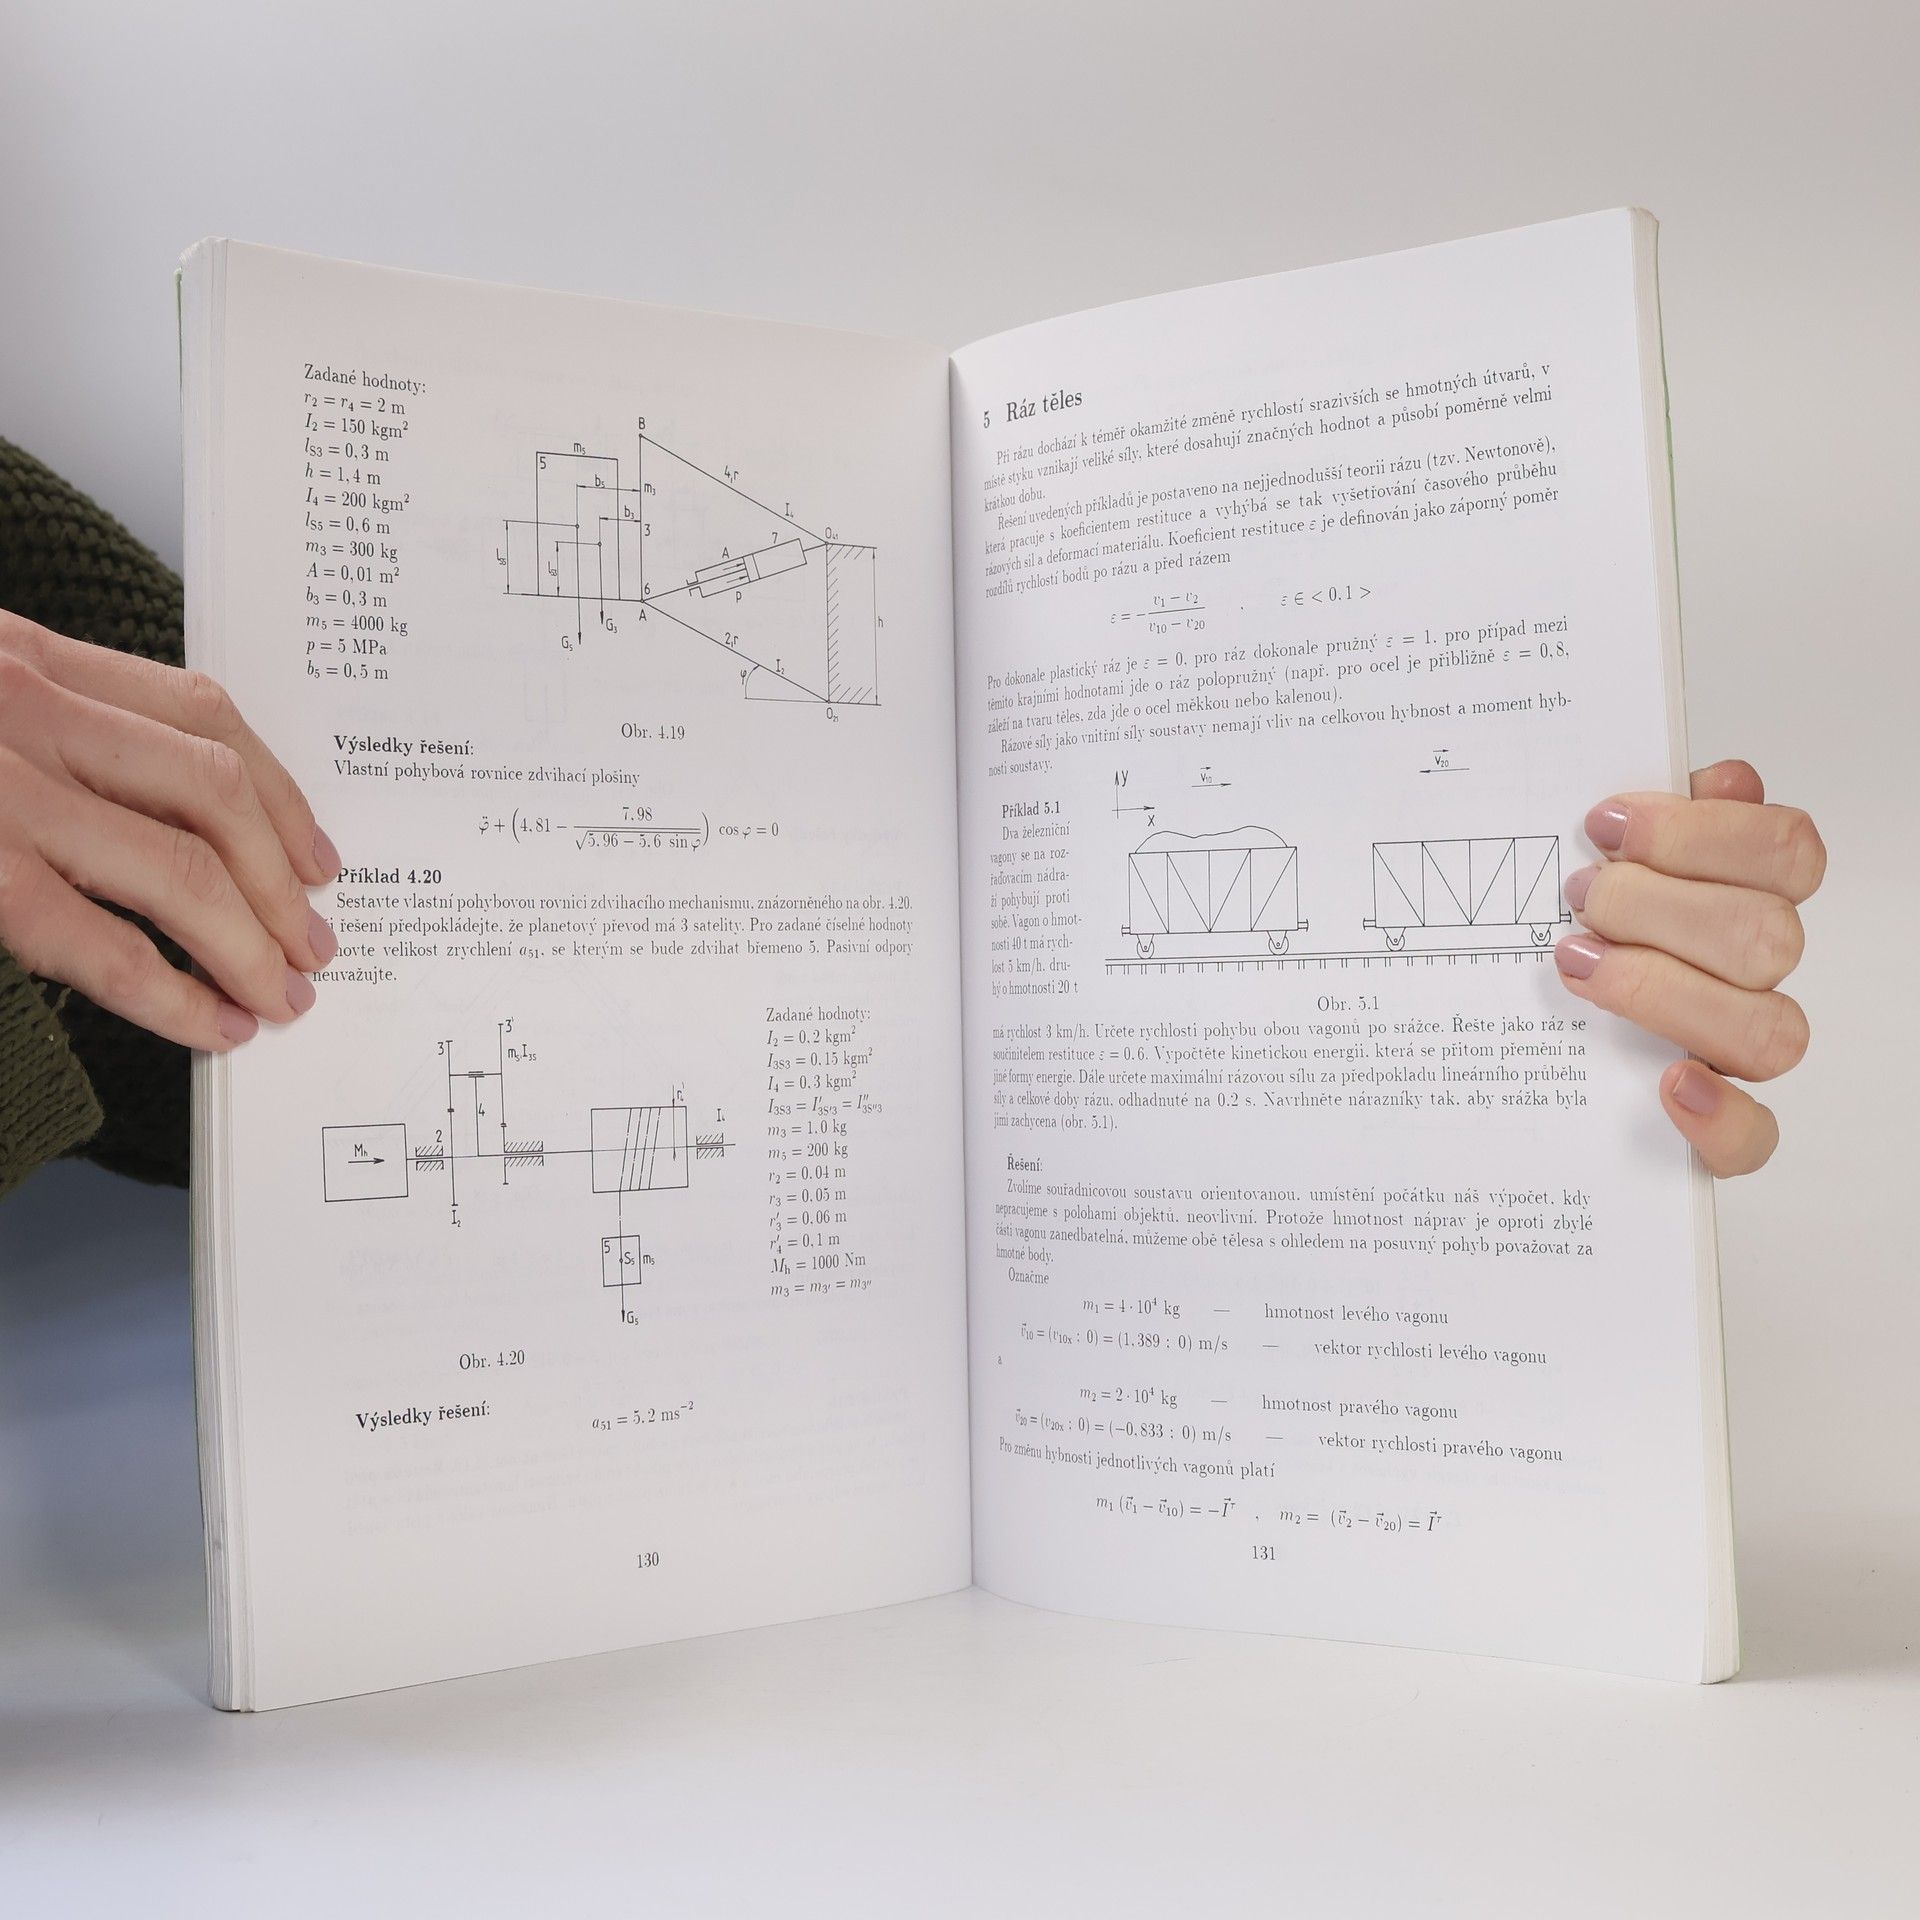 Zadané hodnoty:
r₂ = r₄ = 2 m
I₂ = 150 kgm²
l_S3 = 0,3 m
h = 1,4 m
I₄ = 200 kgm²
l_S5 = 0,6 m
m₃ = 300 kg
A = 0,01 m²
b₃ = 0,3 m
m₅ = 4000 kg
p = 5 MPa
b₅ = 0,5 m
B
m₅
5
4,r
b₅
m₃
I₄
b₃
3
7
O₄₁
A
l_S5
l_S3
6
p
A
G₃
h
G₅
2,r
I₂
φ
O₂₁
Obr. 4.19
Výsledky řešení:
Vlastní pohybová rovnice zdvihací plošiny
φ̈ + (4,81 − 7,98 / √(5,96 − 5,6 sin φ)) cos φ = 0
Příklad 4.20
Sestavte vlastní pohybovou rovnici zdvihacího mechanismu, znázorněného na obr. 4.20.
i řešení předpokládejte, že planetový převod má 3 satelity. Pro zadané číselné hodnoty
novte velikost zrychlení a₅₁, se kterým se bude zdvihat břemeno 5. Pasivní odpory
neuvažujte.
3'
3
4
2
M_h
I₂
I₄
5
S₅
m₅
G₅
Zadané hodnoty:
I₂ = 0,2 kgm²
I₃S₃ = 0,15 kgm²
I₄ = 0,3 kgm²
I₃S₃ = I'₃S'₃ = I''₃S''₃
m₃ = 1,0 kg
m₅ = 200 kg
r₂ = 0,04 m
r₃ = 0,05 m
r'₃ = 0,06 m
r'₄ = 0,1 m
M_h = 1000 Nm
m₃ = m₃' = m₃''
Obr. 4.20
Výsledky řešení:
a₅₁ = 5,2 ms⁻²
130
5 Ráz těles
Při rázu dochází k téměř okamžité změně rychlostí srazivších se hmotných útvarů, v
místě styku vznikají veliké síly, které dosahují značných hodnot a působí poměrně velmi
krátkou dobu.
Řešení uvedených příkladů je postaveno na nejjednodušší teorii rázu (tzv. Newtonově),
která pracuje s koeficientem restituce a vyhýbá se tak vyšetřování časového průběhu
rázových sil a deformací materiálu. Koeficient restituce ε je definován jako záporný poměr
rozdílů rychlostí bodů po rázu a před rázem
ε = −(v₁ − v₂)/(v₁₀ − v₂₀) , ε ∈ < 0,1 >
Pro dokonale plastický ráz je ε = 0, pro ráz dokonale pružný ε = 1, pro případ mezi
těmito krajními hodnotami jde o ráz polopružný (např. pro ocel je přibližně ε = 0,8,
záleží na tvaru těles, zda jde o ocel měkkou nebo kalenou).
Rázové síly jako vnitřní síly soustavy nemají vliv na celkovou hybnost a moment hyb-
nosti soustavy.
y
x
v₁₀
v₂₀
Příklad 5.1
Dva železniční
vagony se na roz-
řaďovacím nádra-
ží pohybují proti
sobě. Vagon o hmot-
nosti 40 t má rych-
lost 5 km/h, dru-
hý o hmotnosti 20 t
Obr. 5.1
má rychlost 3 km/h. Určete rychlosti pohybu obou vagonů po srážce. Řešte jako ráz se
součinitelem restituce ε = 0.6. Vypočtěte kinetickou energii, která se přitom přemění na
jiné formy energie. Dále určete maximální rázovou sílu za předpokladu lineárního průběhu
síly a celkové doby rázu, odhadnuté na 0.2 s. Navrhněte nárazníky tak, aby srážka byla
jimi zachycena (obr. 5.1).
Řešení:
Zvolíme souřadnicovou soustavu orientovanou, umístění počátku náš výpočet, kdy
nepracujeme s polohami objektů, neovlivní. Protože hmotnost náprav je oproti zbylé
části vagonu zanedbatelná, můžeme obě tělesa s ohledem na posuvný pohyb považovat za
hmotné body.
Označme
m₁ = 4 · 10⁴ kg — hmotnost levého vagonu
v⃗₁₀ = (v₁₀ₓ ; 0) = (1,389 ; 0) m/s — vektor rychlosti levého vagonu
a
m₂ = 2 · 10⁴ kg — hmotnost pravého vagonu
v⃗₂₀ = (v₂₀ₓ ; 0) = (−0,833 ; 0) m/s — vektor rychlosti pravého vagonu
Pro změnu hybnosti jednotlivých vagonů platí
m₁ (v⃗₁ − v⃗₁₀) = −I⃗ʳ , m₂ = (v⃗₂ − v⃗₂₀) = I⃗ʳ
131